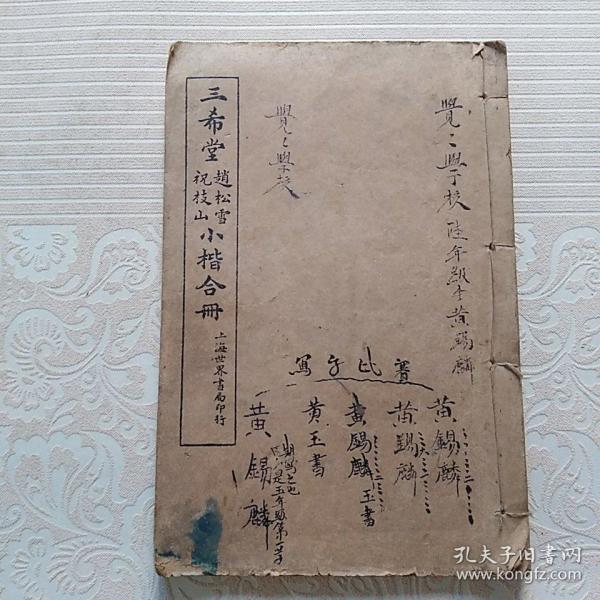 覺〻學校陸年級生黃錫麟
覺〻學校
三希堂
趙松雪
祝枝山
小楷合冊
上海世界書局印行
寫字比賽
黃錫麟
黃錫麟
黃錫麟玉書
黃玉書
是五年級第
黃錫麟
孔夫子旧书网
www.kongfz.com